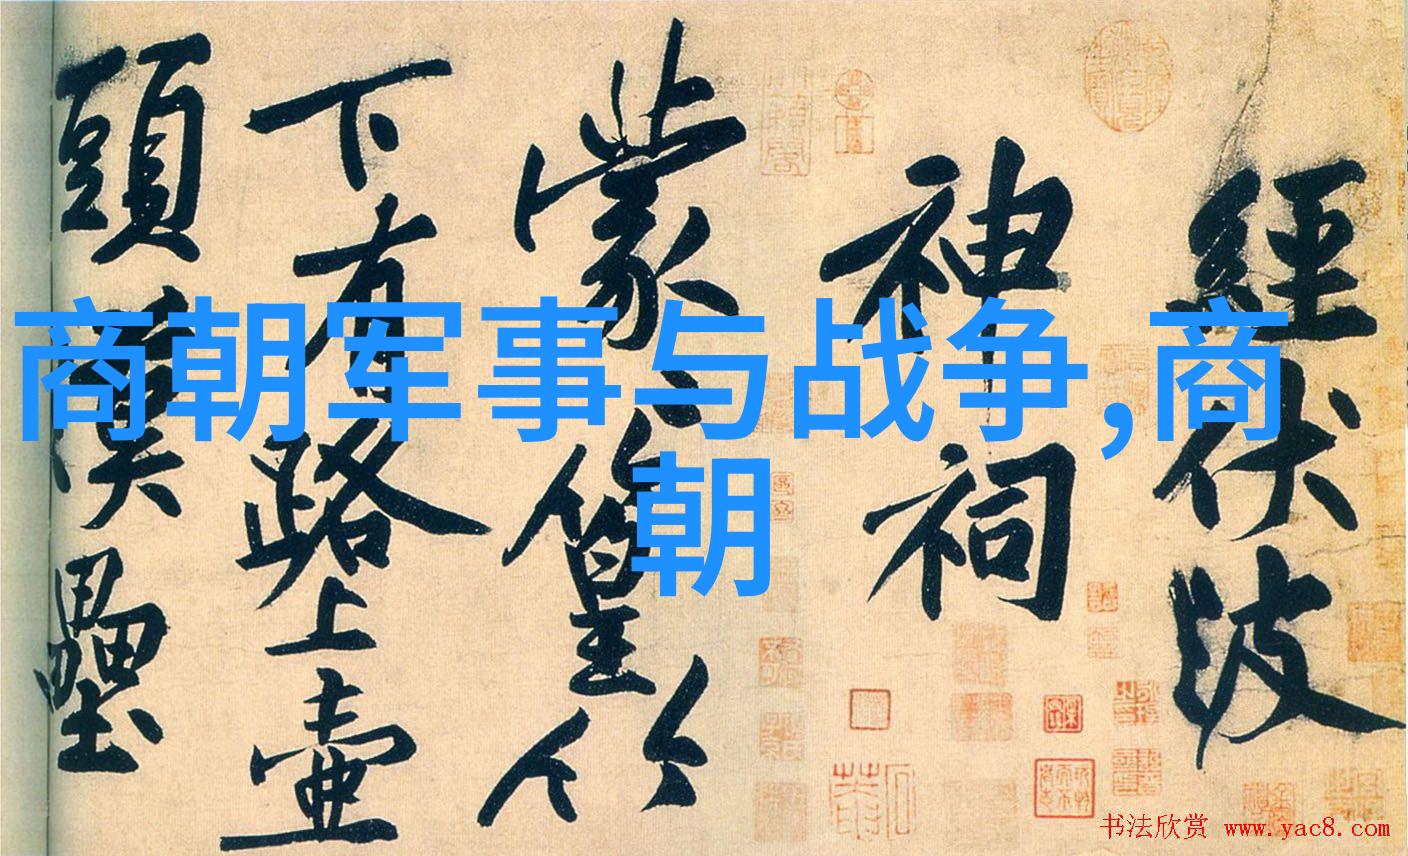 商朝军事与战争,商
朝
經伏波
神祠
蒙〻篁竹
下有路上壺
頭漢壘
书法欣赏 www.yac8.com